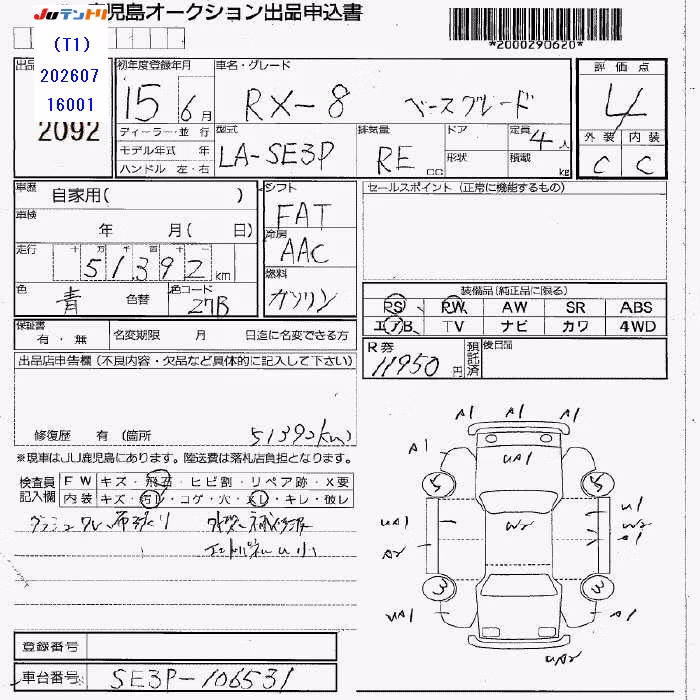 JUテントリ 鹿児島オークション出品申込書
*2000290620*
(T1)
202607
16001
2092
出品
初年度登録年月
15 6月
車名・グレード
RX-8 ベースグレード
評価点
4
ディーラー・並 行
モデル年式 年
ハンドル 左・右
型式
LA-SE3P
排気量
RE cc
ドア
形状
定員 4人
積載 kg
外装 内装
C C
車歴 自家用( )
車検 年 月( 日)
走行 十 万 千 百 十 一
51392 km
色 青 色替 色コード 27B
シフト
FAT
冷房
AAC
燃料
ガソリン
セールスポイント (正常に機能するもの)
装備品(純正品に限る)
PS PW AW SR ABS
エアB TV ナビ カワ 4WD
保証書 有・無 名変期限 月 日迄に名変できる方
R券 11950円 預託済 後日品
出品店申告欄(不良内容・欠品など具体的に記入して下さい)
51392km)
修復歴 有 (箇所
※現車はJU鹿児島にあります。陸送費は落札店負担となります。
検査員記入欄
FW キズ・飛石・ヒビ割・リペア跡・X要
内装 キズ・汚れ・コゲ・穴・スレ・キレ・破レ
A1 A1 A1
A1 UA1
5 5
UA1 W2 U1
W2
A2 A1
3 3
UA1 A1
UA2
登録番号
車台番号 SE3P-106531